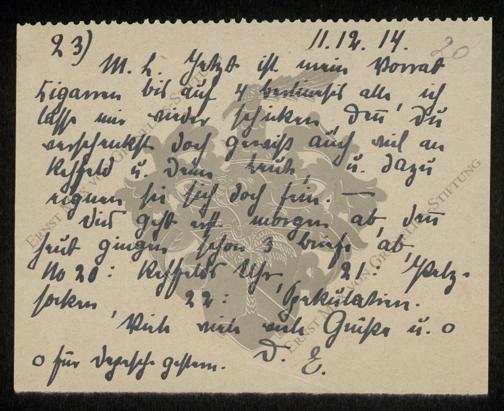 23) 11.12.14. 20
M. L. Jetzt ist mein Vorrat
Zigarren bis auf 4 alle, ich
lasse mir wieder schicken, denn Du
verschenkst doch gewiß auch viel an
Rehfeld u. Deine Leute, u. dazu
eignen sie sich doch fein. —
Dies geht erst morgen ab, denn
heut gingen schon 3 Briefe ab,
No 20: Rehfelds Uhr, 21: Pelz-
socken, 22: Spekulatien.
Viele viele viele Grüße u. o
o für Depesche gestern. D. E.
ERNST MORITZ VON GRIMM STIFTUNG